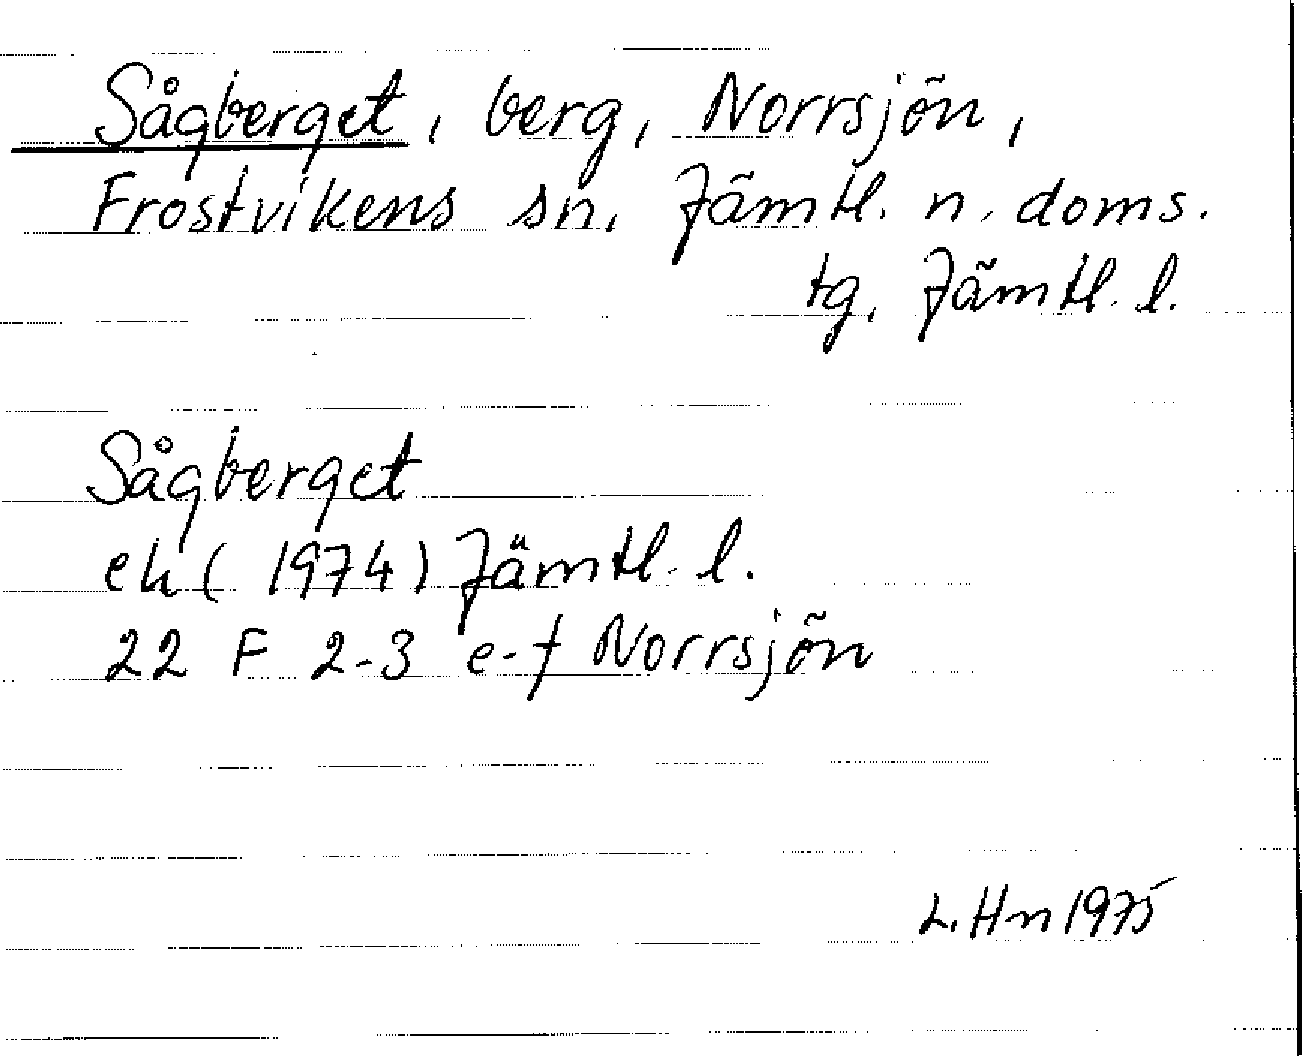 Sågberget, berg, Norrsjön,
Frostvikens sn, Jämtl. n. doms.
tg, Jämtl. l.
Sågberget
ek (1974) Jämtl. l.
22 F 2-3 e-f Norrsjön
L. Hn 1975